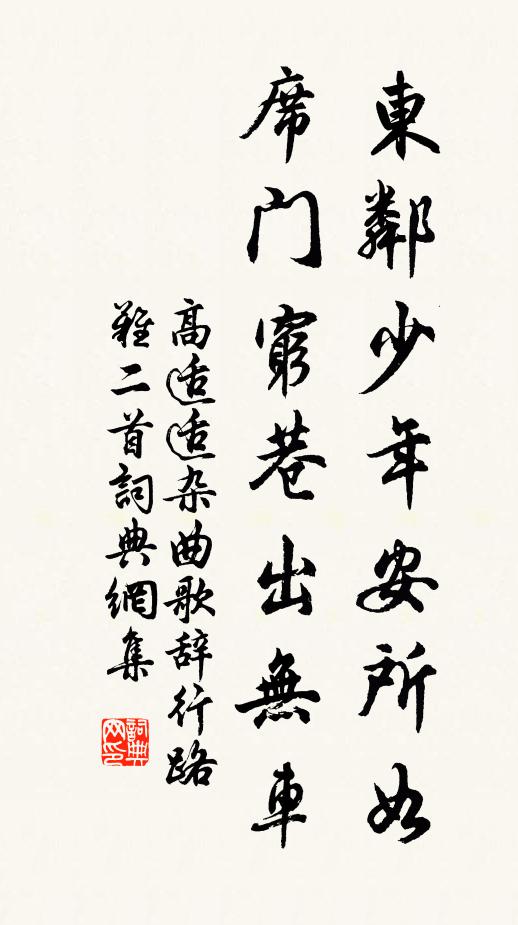 東鄰少年安所如
席門窮巷出無車
高适适杂曲歌辞行路
難二首詞典網集
詞典
网印